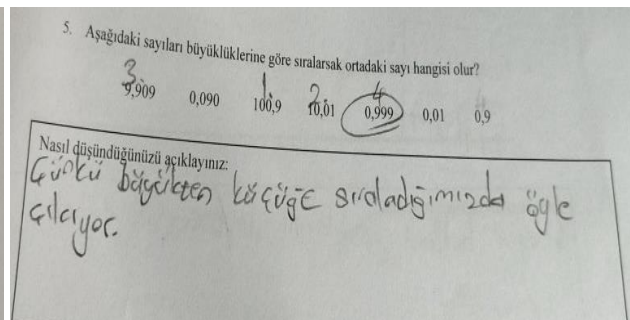 5. Aşağıdaki sayıları büyüklüklerine göre sıralarsak ortadaki sayı hangisi olur?
3 1 2 4
9,909 0,090 100,9 10,01 0,999 0,01 0,9
Nasıl düşündüğünüzü açıklayınız:
Çünkü büyükten küçüğe sıraladığımızda öyle
çıkıyor.